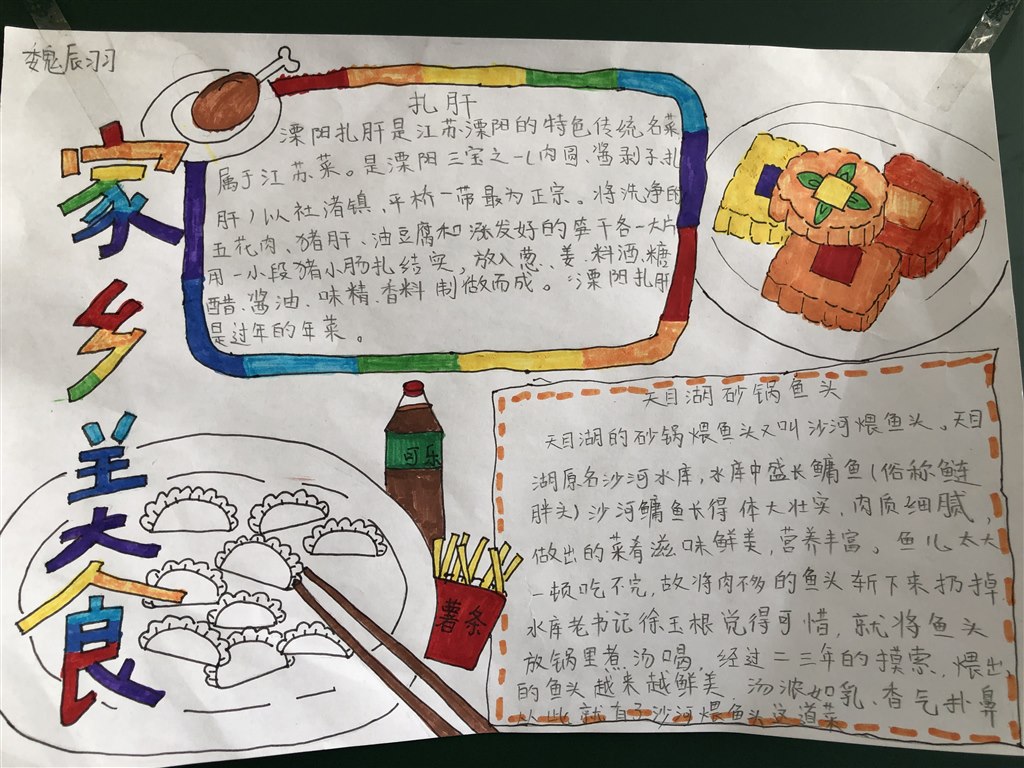 魏辰羽
家乡美食
扎肝
溧阳扎肝是江苏溧阳的特色传统名菜
属于江苏菜。是溧阳三宝之一(肉圆、酱剥子、扎
肝)以社渚镇、平桥一带最为正宗。将洗净的
五花肉、猪肝、油豆腐和涨发好的笋干各一大片
用一小段猪小肠扎结实,放入葱、姜、料酒、糖
醋、酱油、味精、香料制做而成。溧阳扎肝
是过年的年菜。
可乐
薯条
天目湖砂锅鱼头
天目湖的砂锅煨鱼头又叫沙河煨鱼头。天目
湖原名沙河水库,水库中盛长鳙鱼(俗称鲢
胖头)沙河鳙鱼长得体大壮实,肉质细腻,
做出的菜肴滋味鲜美,营养丰富。鱼儿太大
一顿吃不完,故将肉不多的鱼头斩下来扔掉
水库老书记徐玉根觉得可惜,就将鱼头
放锅里煮汤喝,经过二三年的摸索,煨出
的鱼头越来越鲜美,汤浓如乳、香气扑鼻
从此就有了沙河煨鱼头这道菜